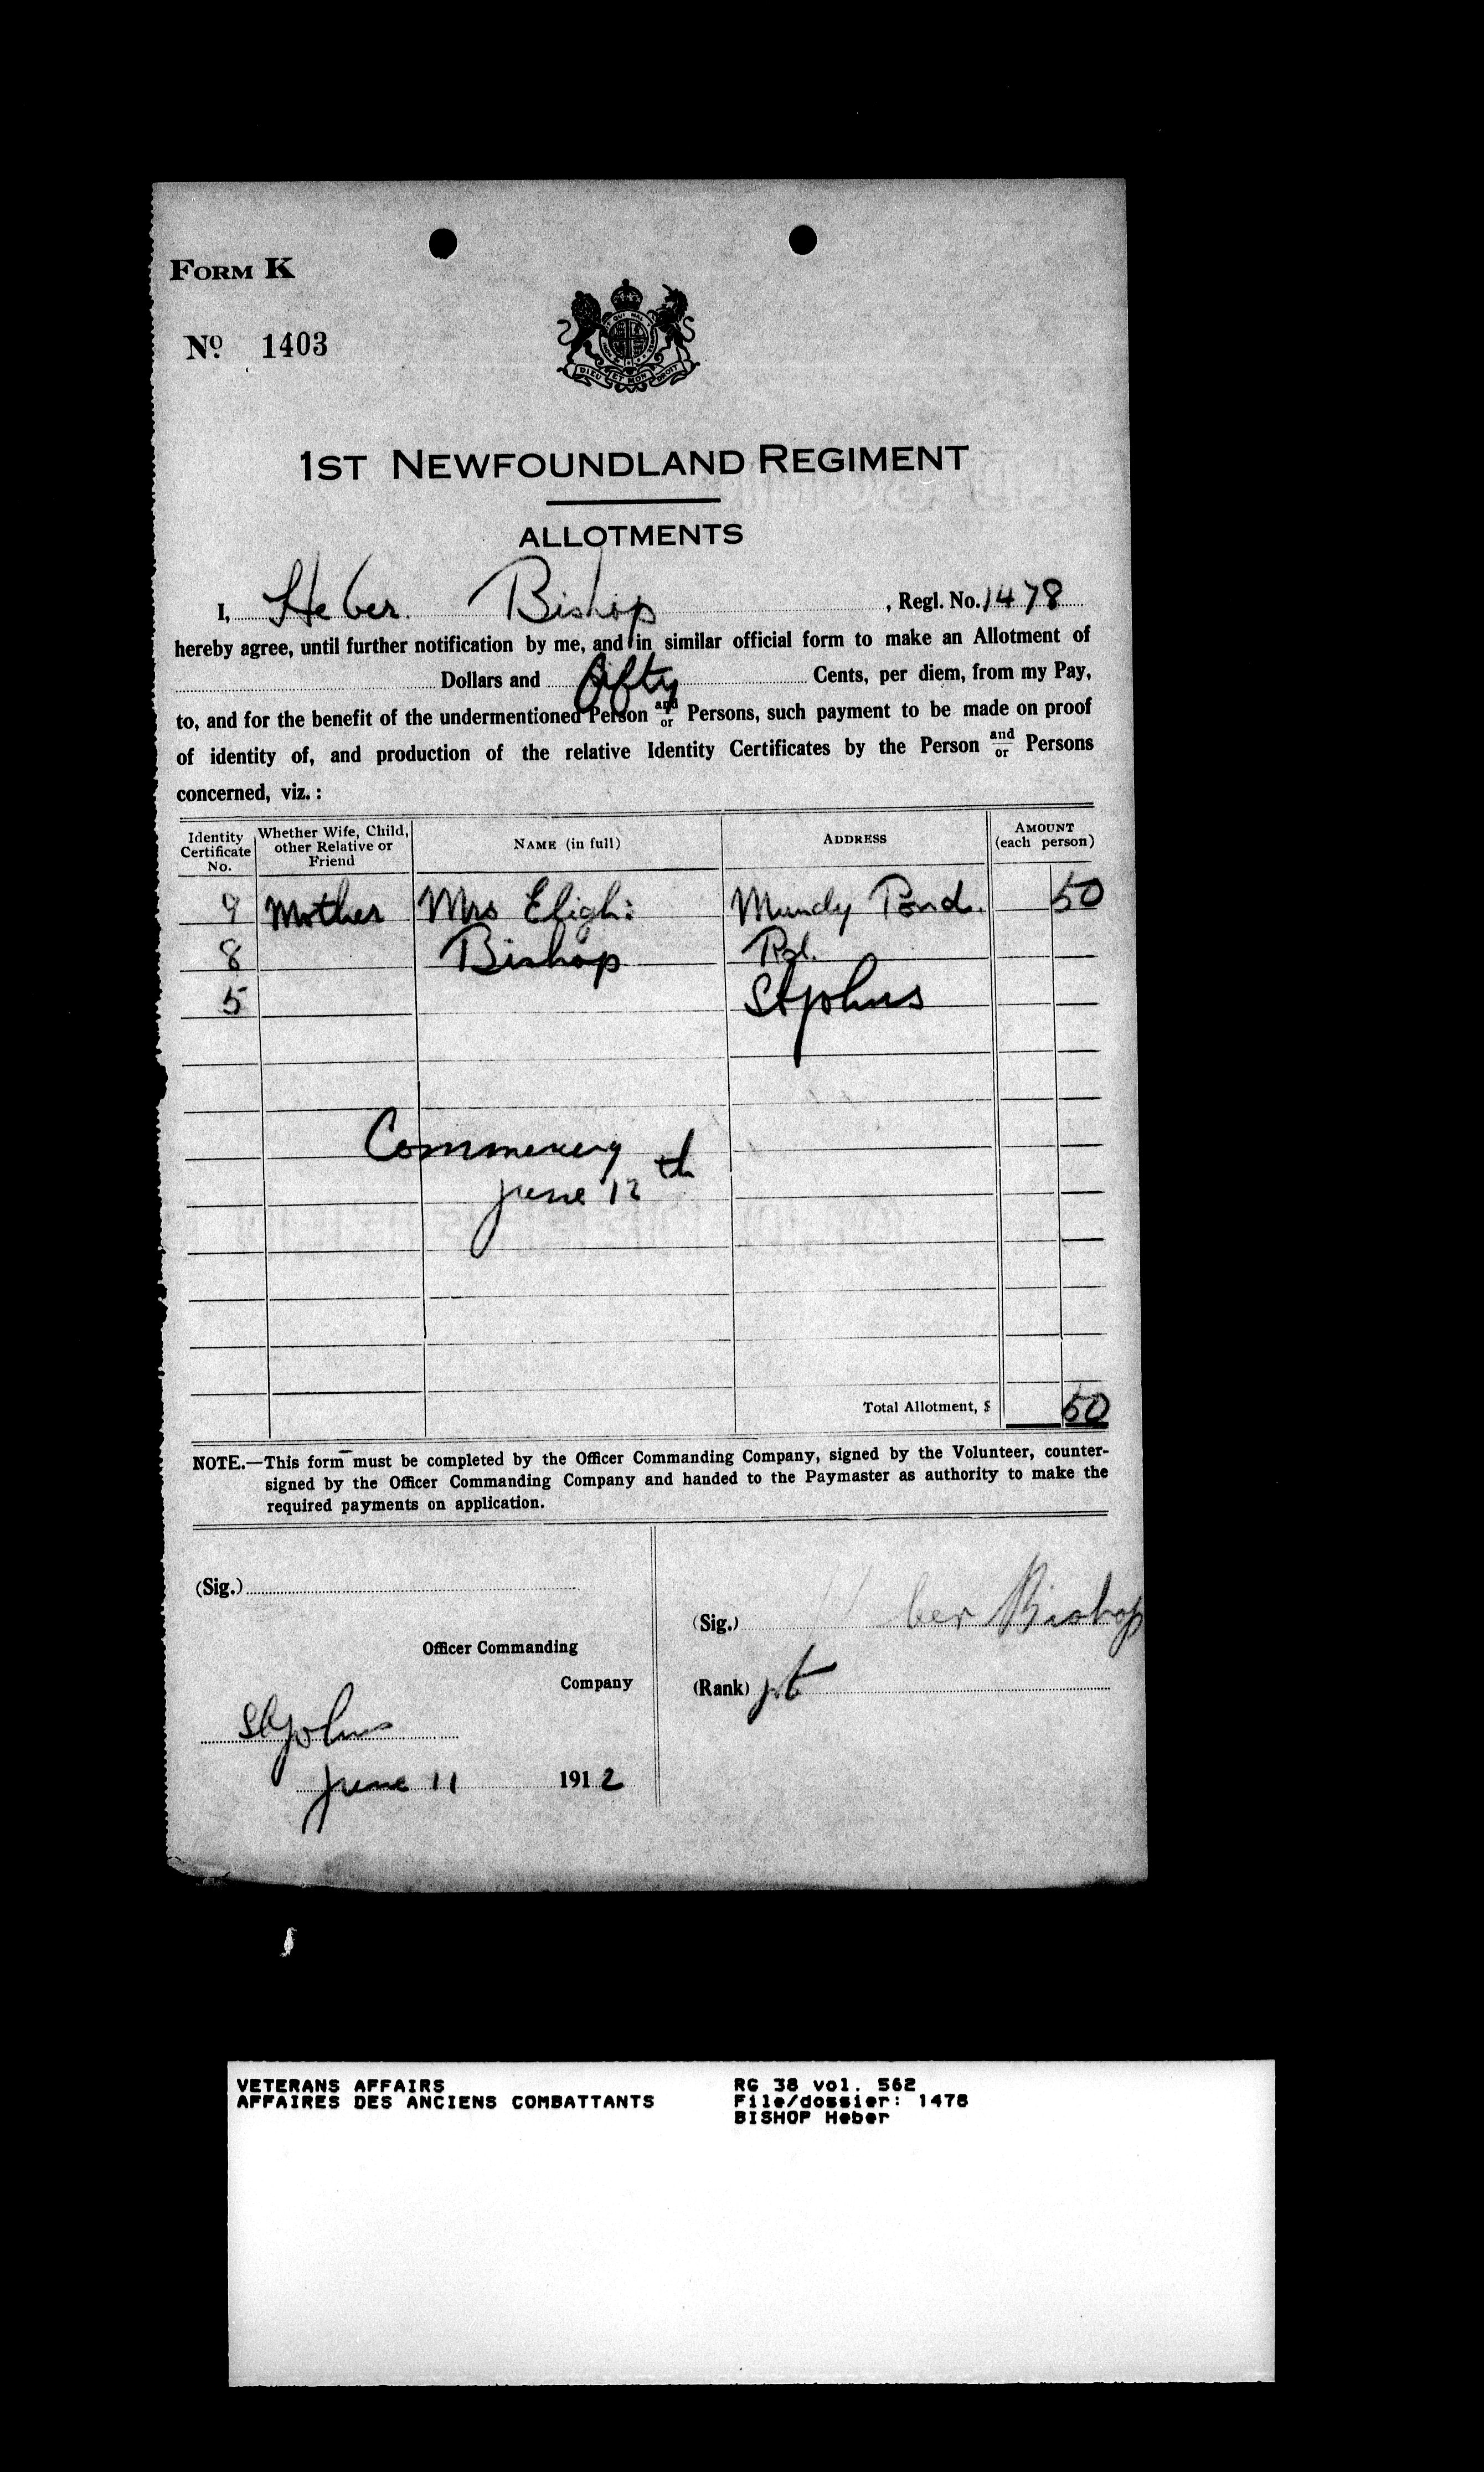 FORM K
Nº 1403
DIEU ET MON DROIT
1ST NEWFOUNDLAND REGIMENT
ALLOTMENTS
I, Heber Bishop, Regl. No. 1478
hereby agree, until further notification by me, and in similar official form to make an Allotment of
Dollars and fifty Cents, per diem, from my Pay,
to, and for the benefit of the undermentioned Person and/or Persons, such payment to be made on proof
of identity of, and production of the relative Identity Certificates by the Person and/or Persons
concerned, viz.:
Identity Certificate No. Whether Wife, Child, other Relative or Friend NAME (in full) ADDRESS AMOUNT (each person)
9 Mother Mrs Mundy Pond. 50
8 Bishop Rd.
5 St Johns
Commencing
June 12th
Total Allotment, $ 50
NOTE.—This form must be completed by the Officer Commanding Company, signed by the Volunteer, counter-
signed by the Officer Commanding Company and handed to the Paymaster as authority to make the
required payments on application.
(Sig.)
Officer Commanding
Company
St Johns
June 11 1912
(Sig.) ber Bishop
(Rank)
VETERANS AFFAIRS RG 38 vol. 562
AFFAIRES DES ANCIENS COMBATTANTS File/dossier: 1478
BISHOP Heber